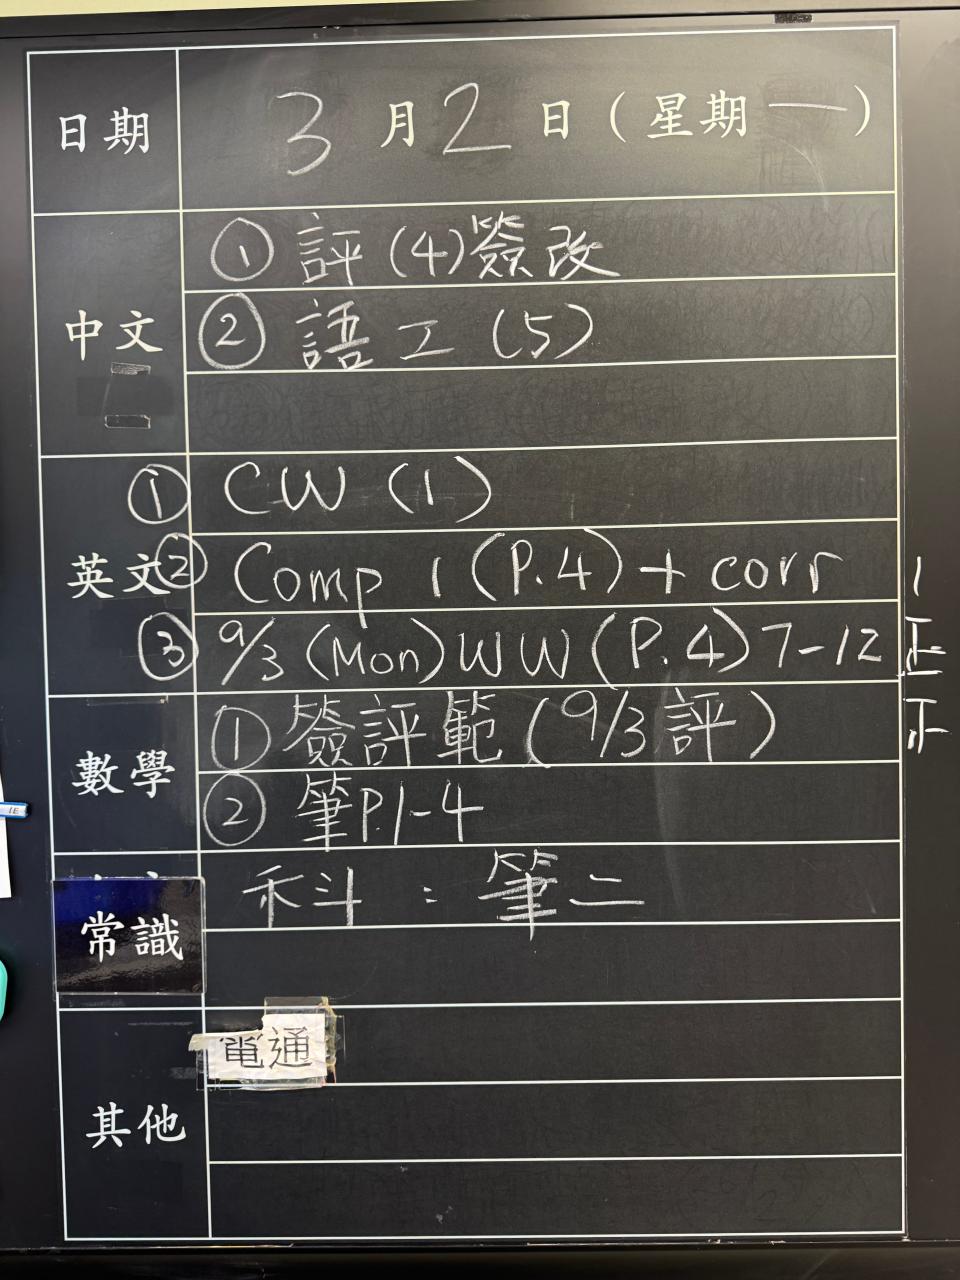 日期 3月2日（星期一）
中文
① 評(4)簽改
② 語工(5)
英文
① CW (1)
② Comp 1 (P.4) + corr
③ 9/3 (Mon) WW (P.4) 7-12
數學
① 簽評範(9/3評)
② 筆P.1-4
常識
科：筆二
其他
電通
1E